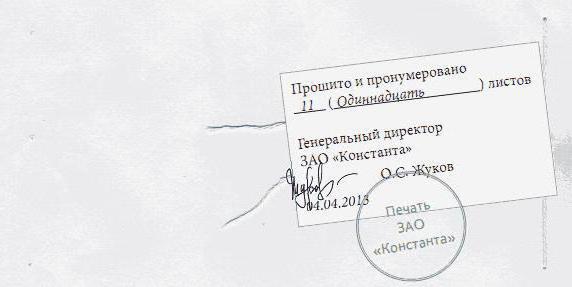 Прошито и пронумеровано
11 (Одиннадцать) листов
Генеральный директор
ЗАО «Константа»
О.С. Жуков
04.04.2013
Печать
ЗАО
«Константа»